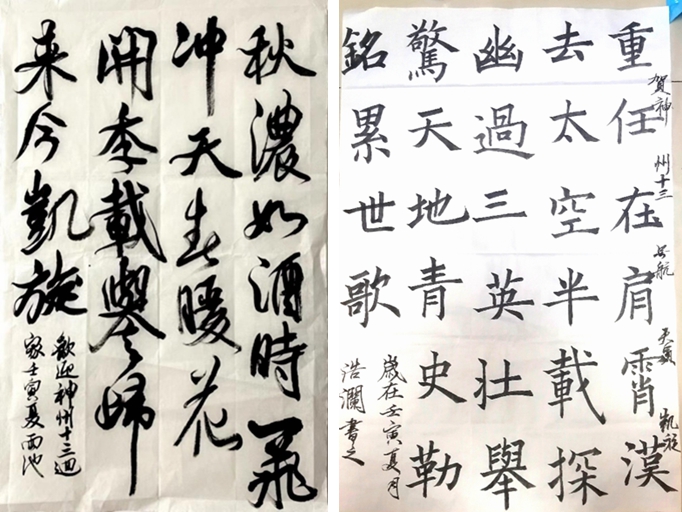 秋濃如酒時飛
冲天春暖花
開季載譽歸
来今凱旋
歡迎神州十三迴
家壬寅夏雨池
重任在肩霄漢
賀神州十三航凱旋
去太空半載探
幽過三英壯舉
驚天地青史勒
銘累世歌
歲在壬寅夏月
浩瀾書之